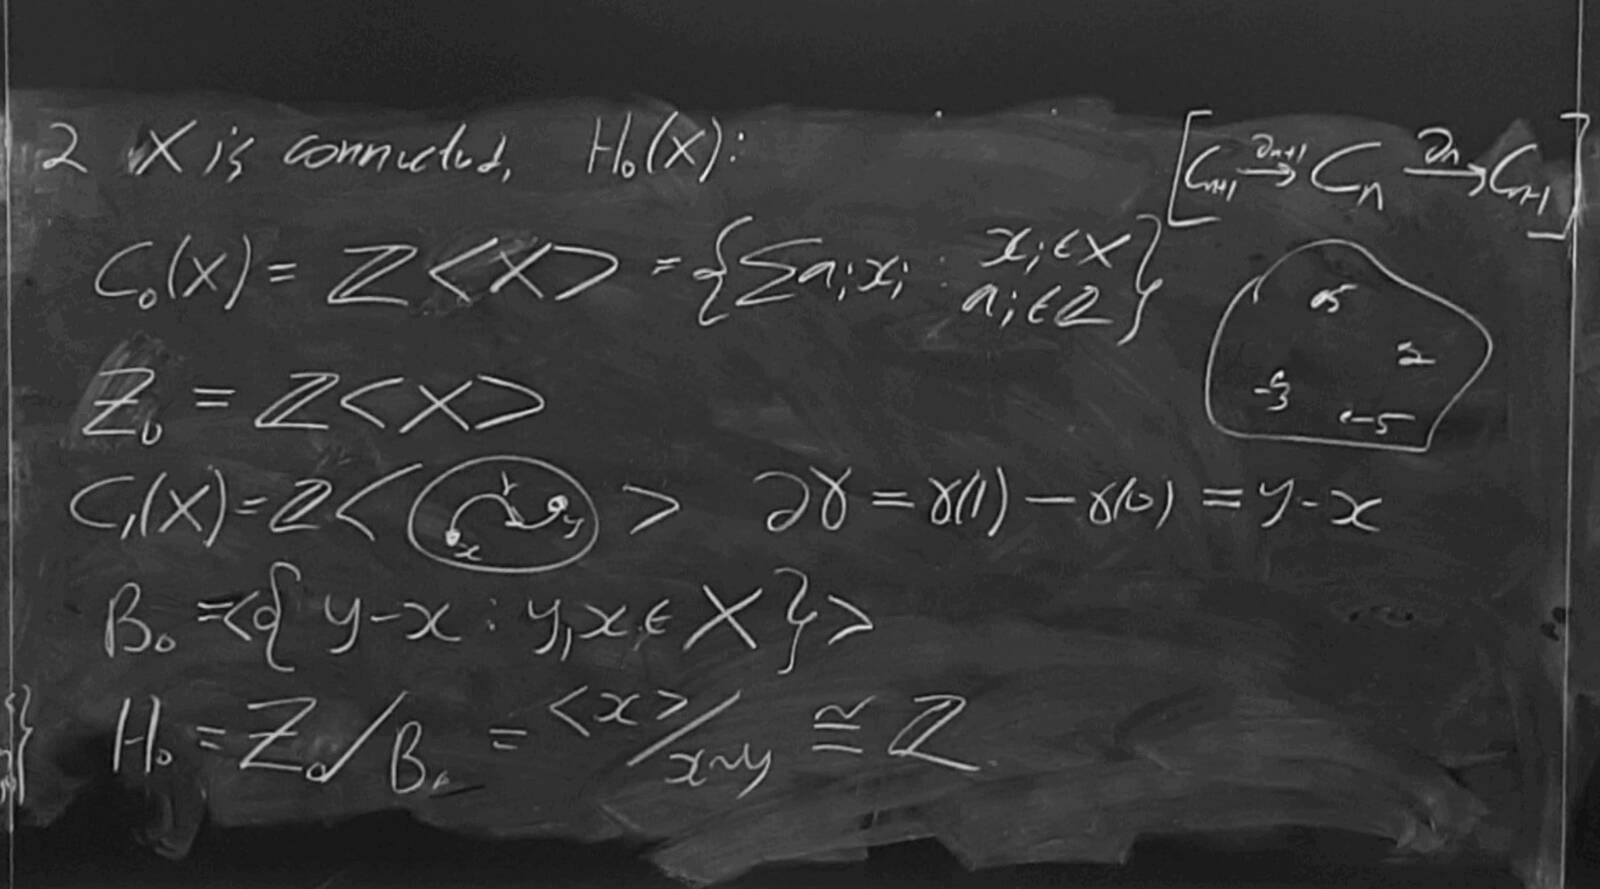 2 X is connected, H₀(X):
[Cₙ₊₁ →∂ₙ₊₁ Cₙ →∂ₙ Cₙ₊₁]
C₀(X) = ℤ<X> = {∑aᵢxᵢ : xᵢ∈X aᵢ∈ℤ}
5
2
-3
-5
Z₀ = ℤ<X>
C₁(X) = ℤ< γ x y > ∂γ = γ(1) − γ(0) = y − x
B₀ = <{y − x : y, x ∈ X}>
H₀ = Z₀/B₀ = <x>/x~y ≅ ℤ